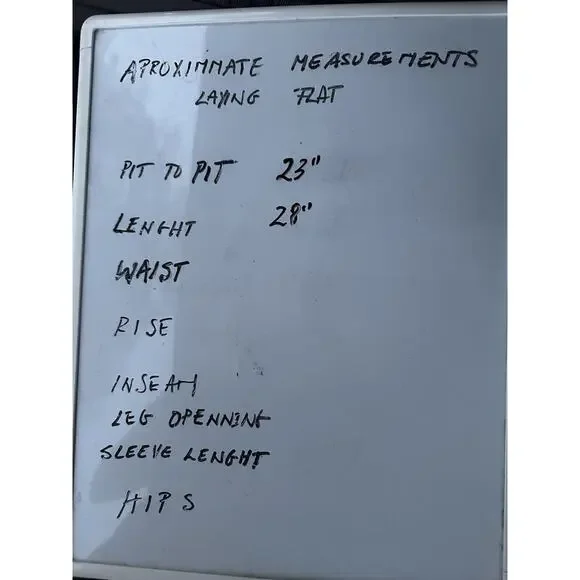 APROXIMMATE MEASUREMENTS
LAYING FLAT
PIT TO PIT 23"
LENGHT 28"
WAIST
RISE
INSEAM
LEG OPENNING
SLEEVE LENGHT
HIPS